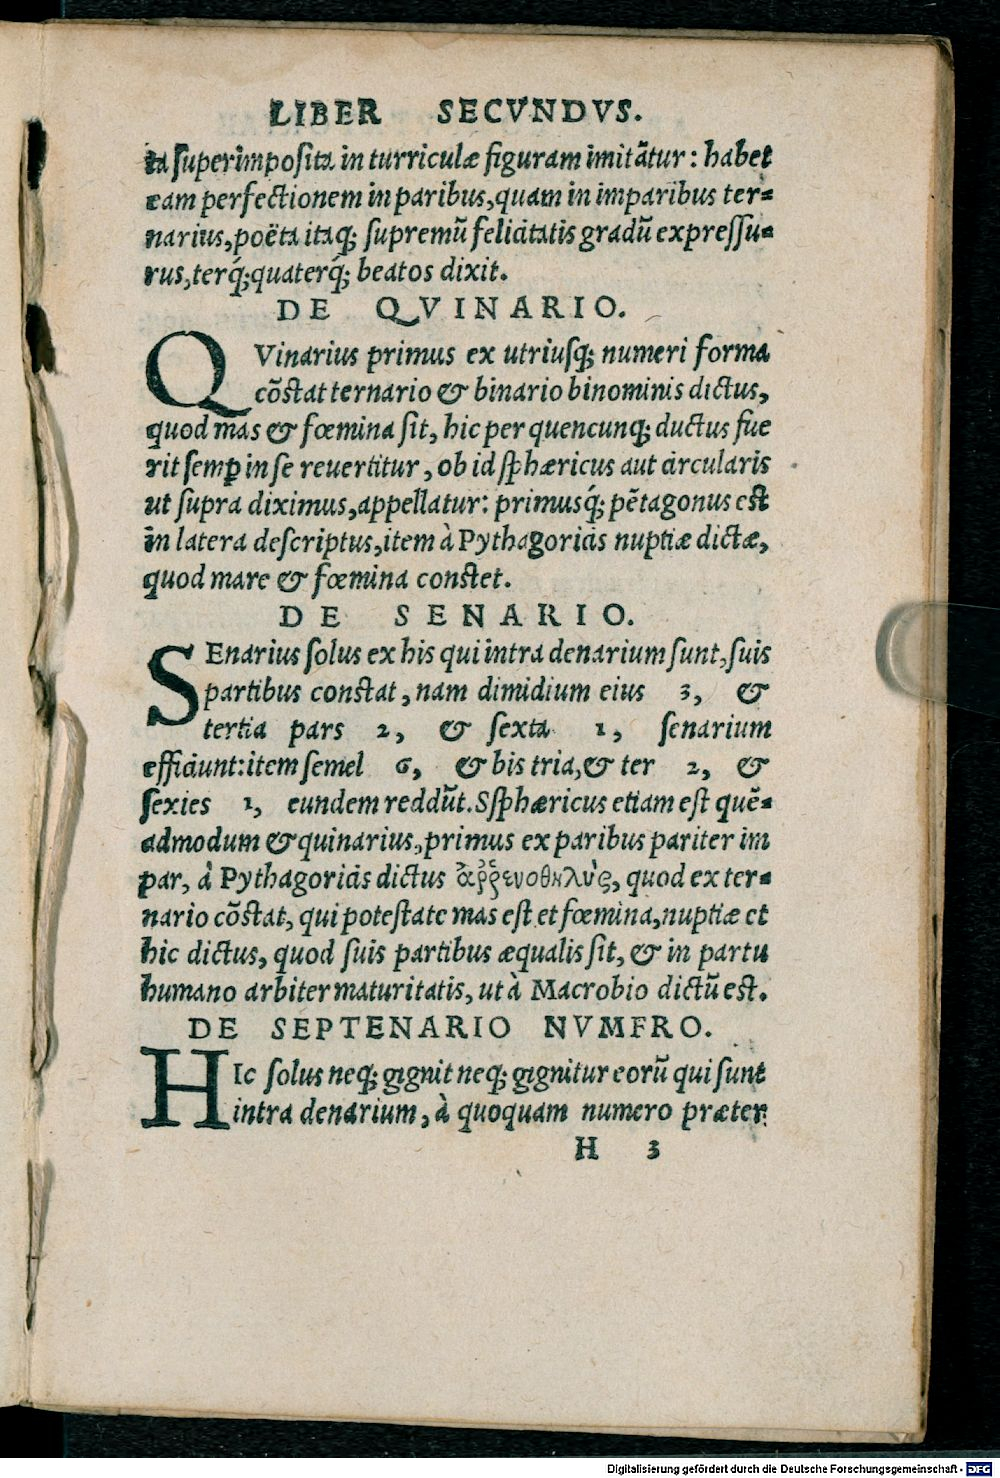 LIBER SECVNDVS.
ta superimposita in turriculæ figuram imitātur: habet
eam perfectionem in paribus, quam in imparibus ter-
narius, poëta itaq; supremū felicitatis gradū expressu-
rus, terq́; quaterq́; beatos dixit.
DE QVINARIO.
QVinarius primus ex utriusq; numeri forma
cōstat ternario & binario binominis dictus,
quod mas & fœmina sit, hic per quencunq; ductus fue
rit semꝑ in se reuertitur, ob id sphæricus aut circularis
ut supra diximus, appellatur: primusq́; pētagonus est
in latera descriptus, item à Pythagoricis nuptiæ dictæ,
quod mare & fœmina constet.
DE SENARIO.
SEnarius solus ex his qui intra denarium sunt, suis
partibus constat, nam dimidium eius 3, &
tertia pars 2, & sexta 1, senarium
efficiunt: item semel 6, & bis tria, & ter 2, &
sexies 1, eundem reddūt. Ssphæricus etiam est quē-
admodum & quinarius, primus ex paribus pariter im
par, à Pythagoricis dictus ἀῤῥενοθηλὺς, quod ex ter-
nario cōstat, qui potestate mas est et fœmina, nuptiæ et
hic dictus, quod suis partibus æqualis sit, & in partu
humano arbiter maturitatis, ut à Macrobio dictū est.
DE SEPTENARIO NVMERO.
HIc solus neq; gignit neq; gignitur eorū qui sunt
intra denarium, à quoquam numero præter
H 3
Digitalisierung gefördert durch die Deutsche Forschungsgemeinschaft - DFG